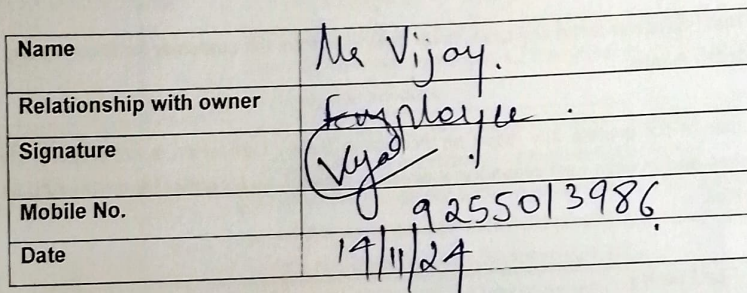 Name Mr Vijay.
Relationship with owner Employee.
Signature Vijay
Mobile No. 9255013986
Date 14/11/24